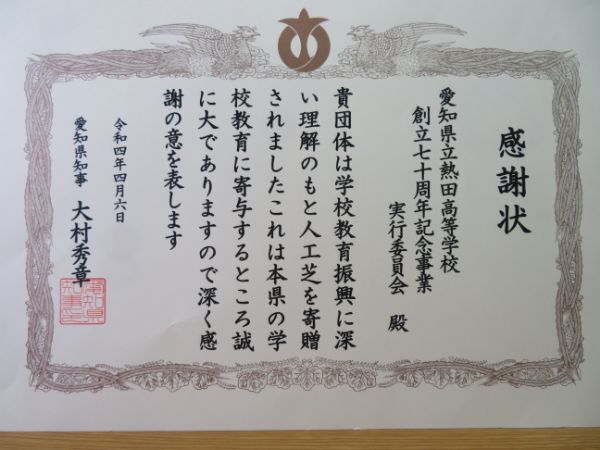 感謝状
愛知県立熱田高等学校
創立七十周年記念事業
実行委員会 殿
貴団体は学校教育振興に深
い理解のもと人工芝を寄贈
されましたこれは本県の学
校教育に寄与するところ誠
に大でありますので深く感
謝の意を表します
令和四年四月六日
愛知県知事 大村秀章
愛知県
知事之印